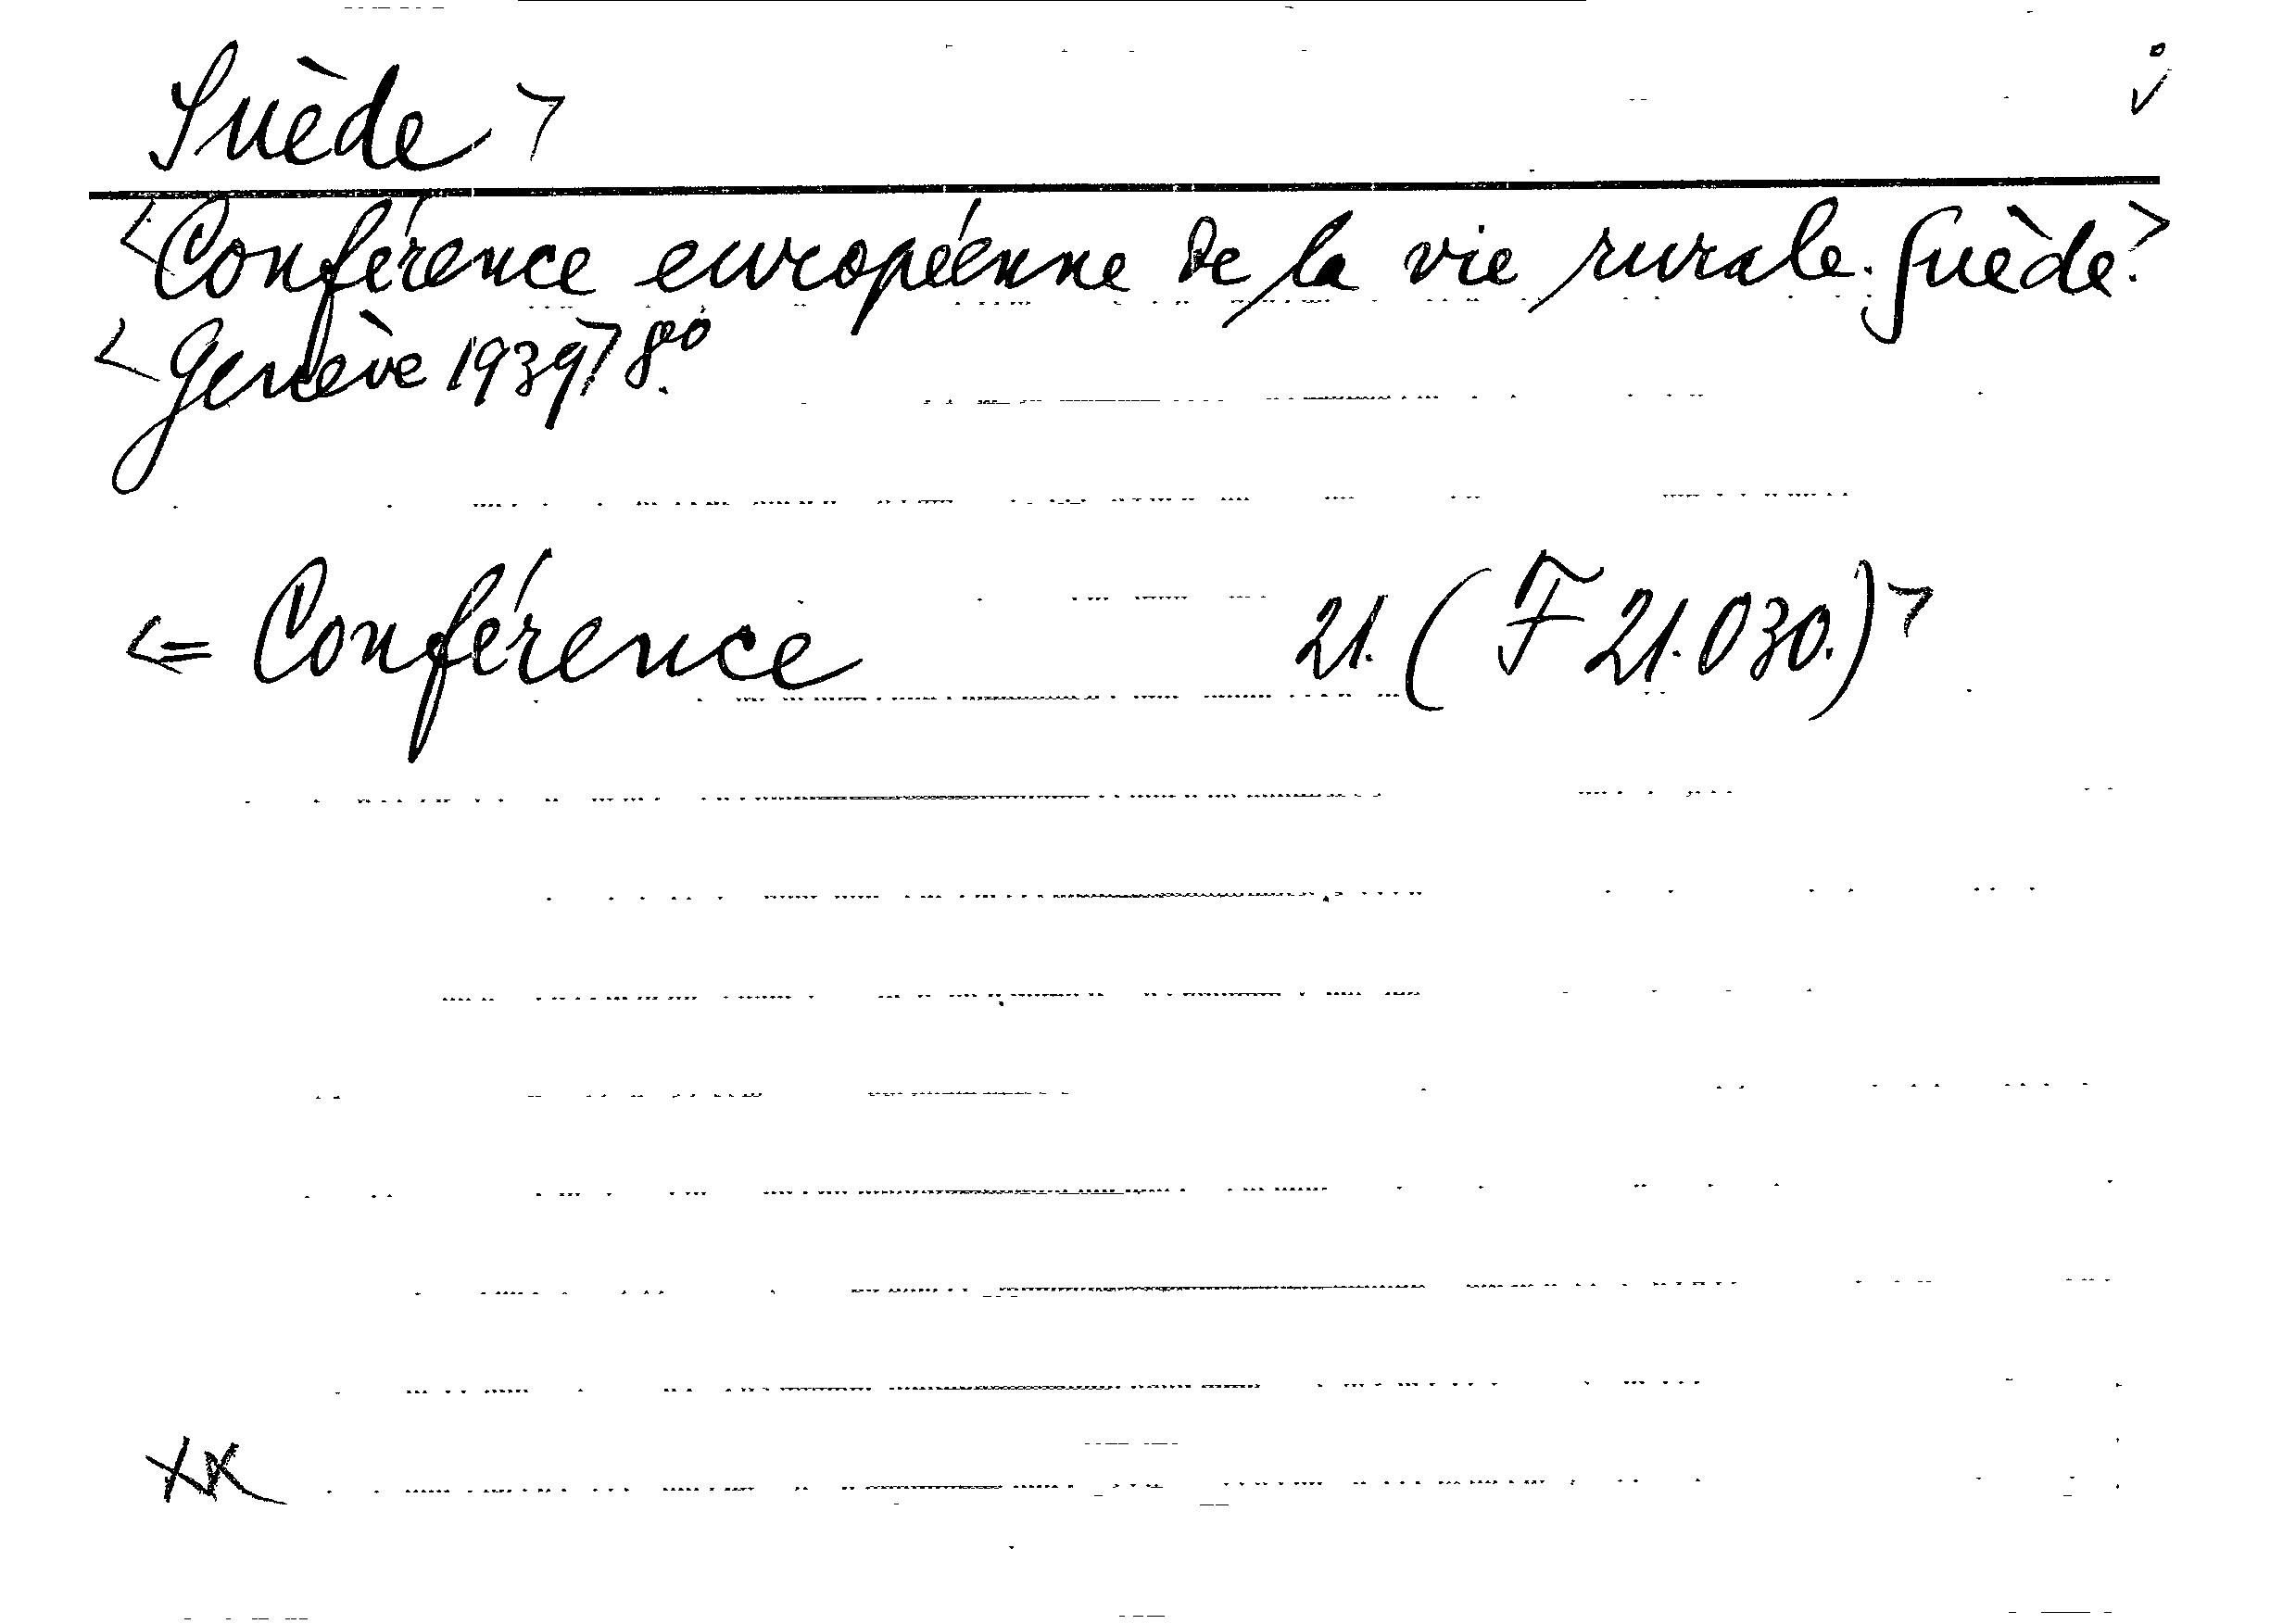 Suède >
<Conférence européenne de la vie rurale. Suède.>
<Genève 1939> 8vo.
<= Conférence 21. (F 21.030.)>